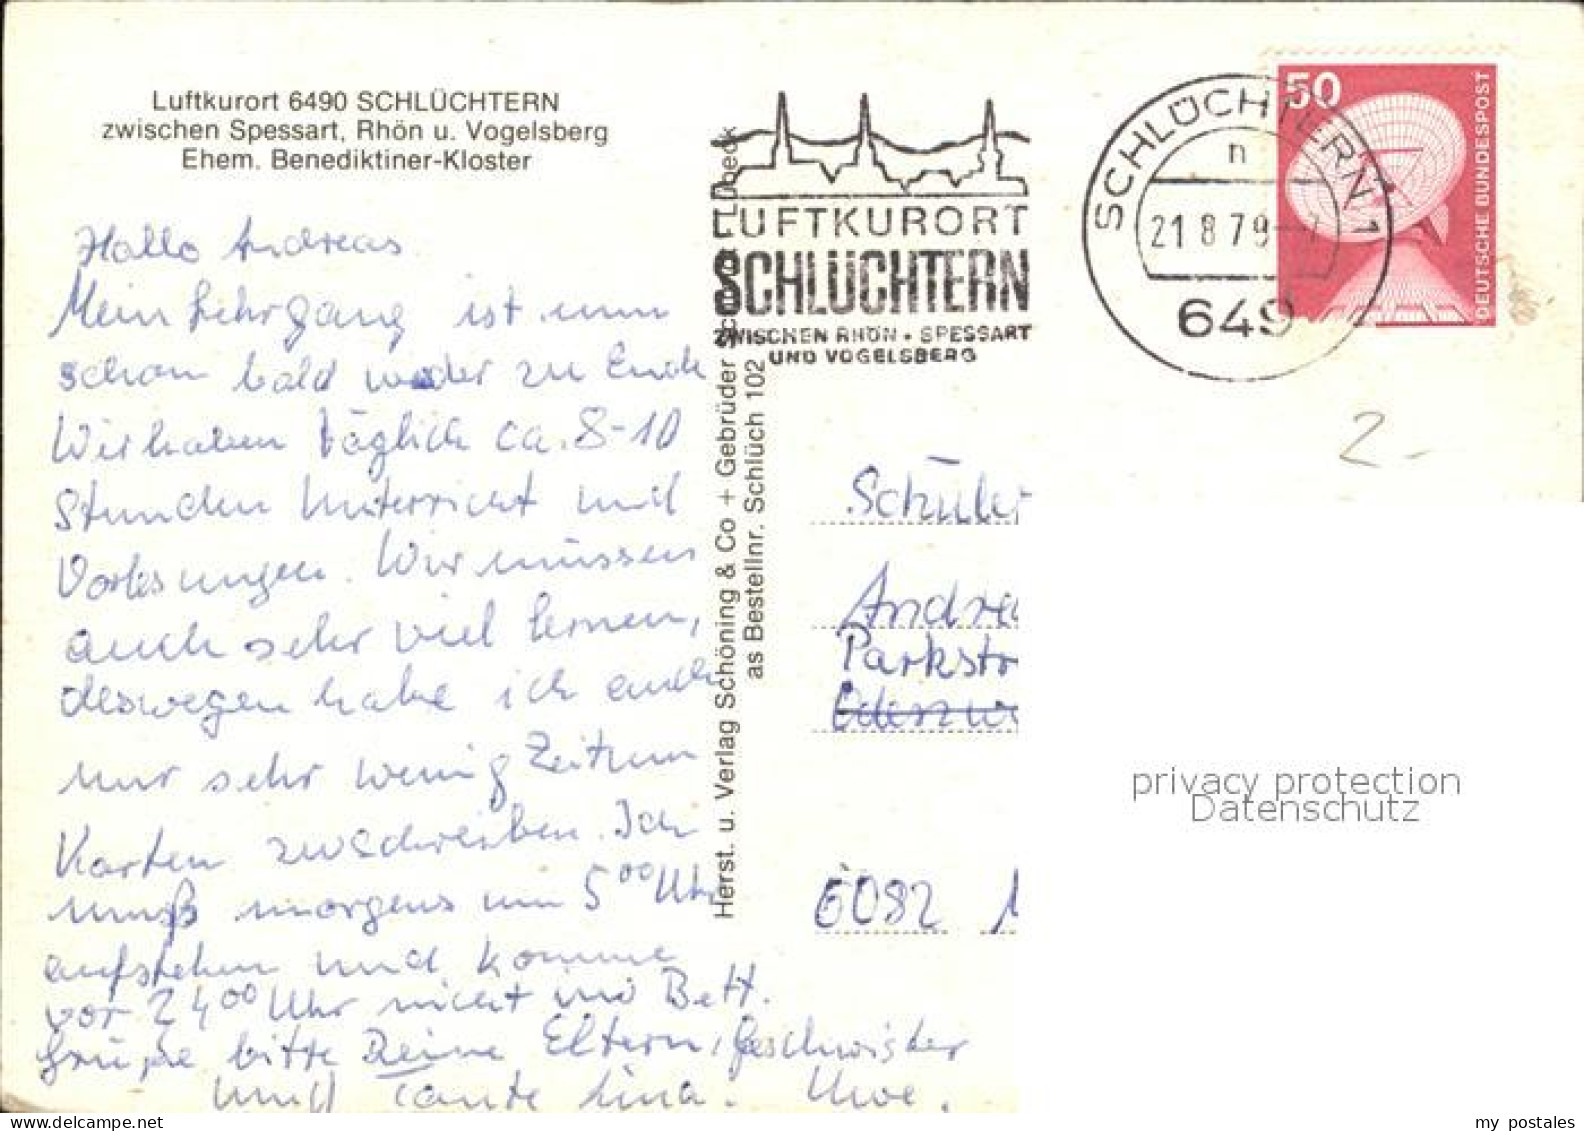 Luftkurort 6490 SCHLÜCHTERN
zwischen Spessart, Rhön u. Vogelsberg
Ehem. Benediktiner-Kloster
Hallo Andreas
Mein Lehrgang ist nun
schon bald wieder zu Ende
Wir haben täglich ca. 8-10
Stunden Unterricht und
Vorlesungen. Wir müssen
auch sehr viel lernen,
deswegen habe ich auch
nur sehr wenig Zeit um
Karten zuschreiben. Ich
muß morgens um 5⁰⁰ Uhr
aufstehen und komme
vor 24⁰⁰ Uhr nicht ins Bett.
Grüße bitte Deine Eltern, Geschwister
und Tante Lina. Uwe.
Herst. u. Verlag Schöning & Co + Gebrüder Lübeck
as Bestellnr. Schlüch 102
LUFTKURORT
SCHLÜCHTERN
ZWISCHEN RHÖN - SPESSART
UND VOGELSBERG
SCHLÜCHTERN 1
n
21.8.79
649
50
DEUTSCHE BUNDESPOST
2.-
Schüler
Andrea
Parkstr
6082
privacy protection
Datenschutz
my postales